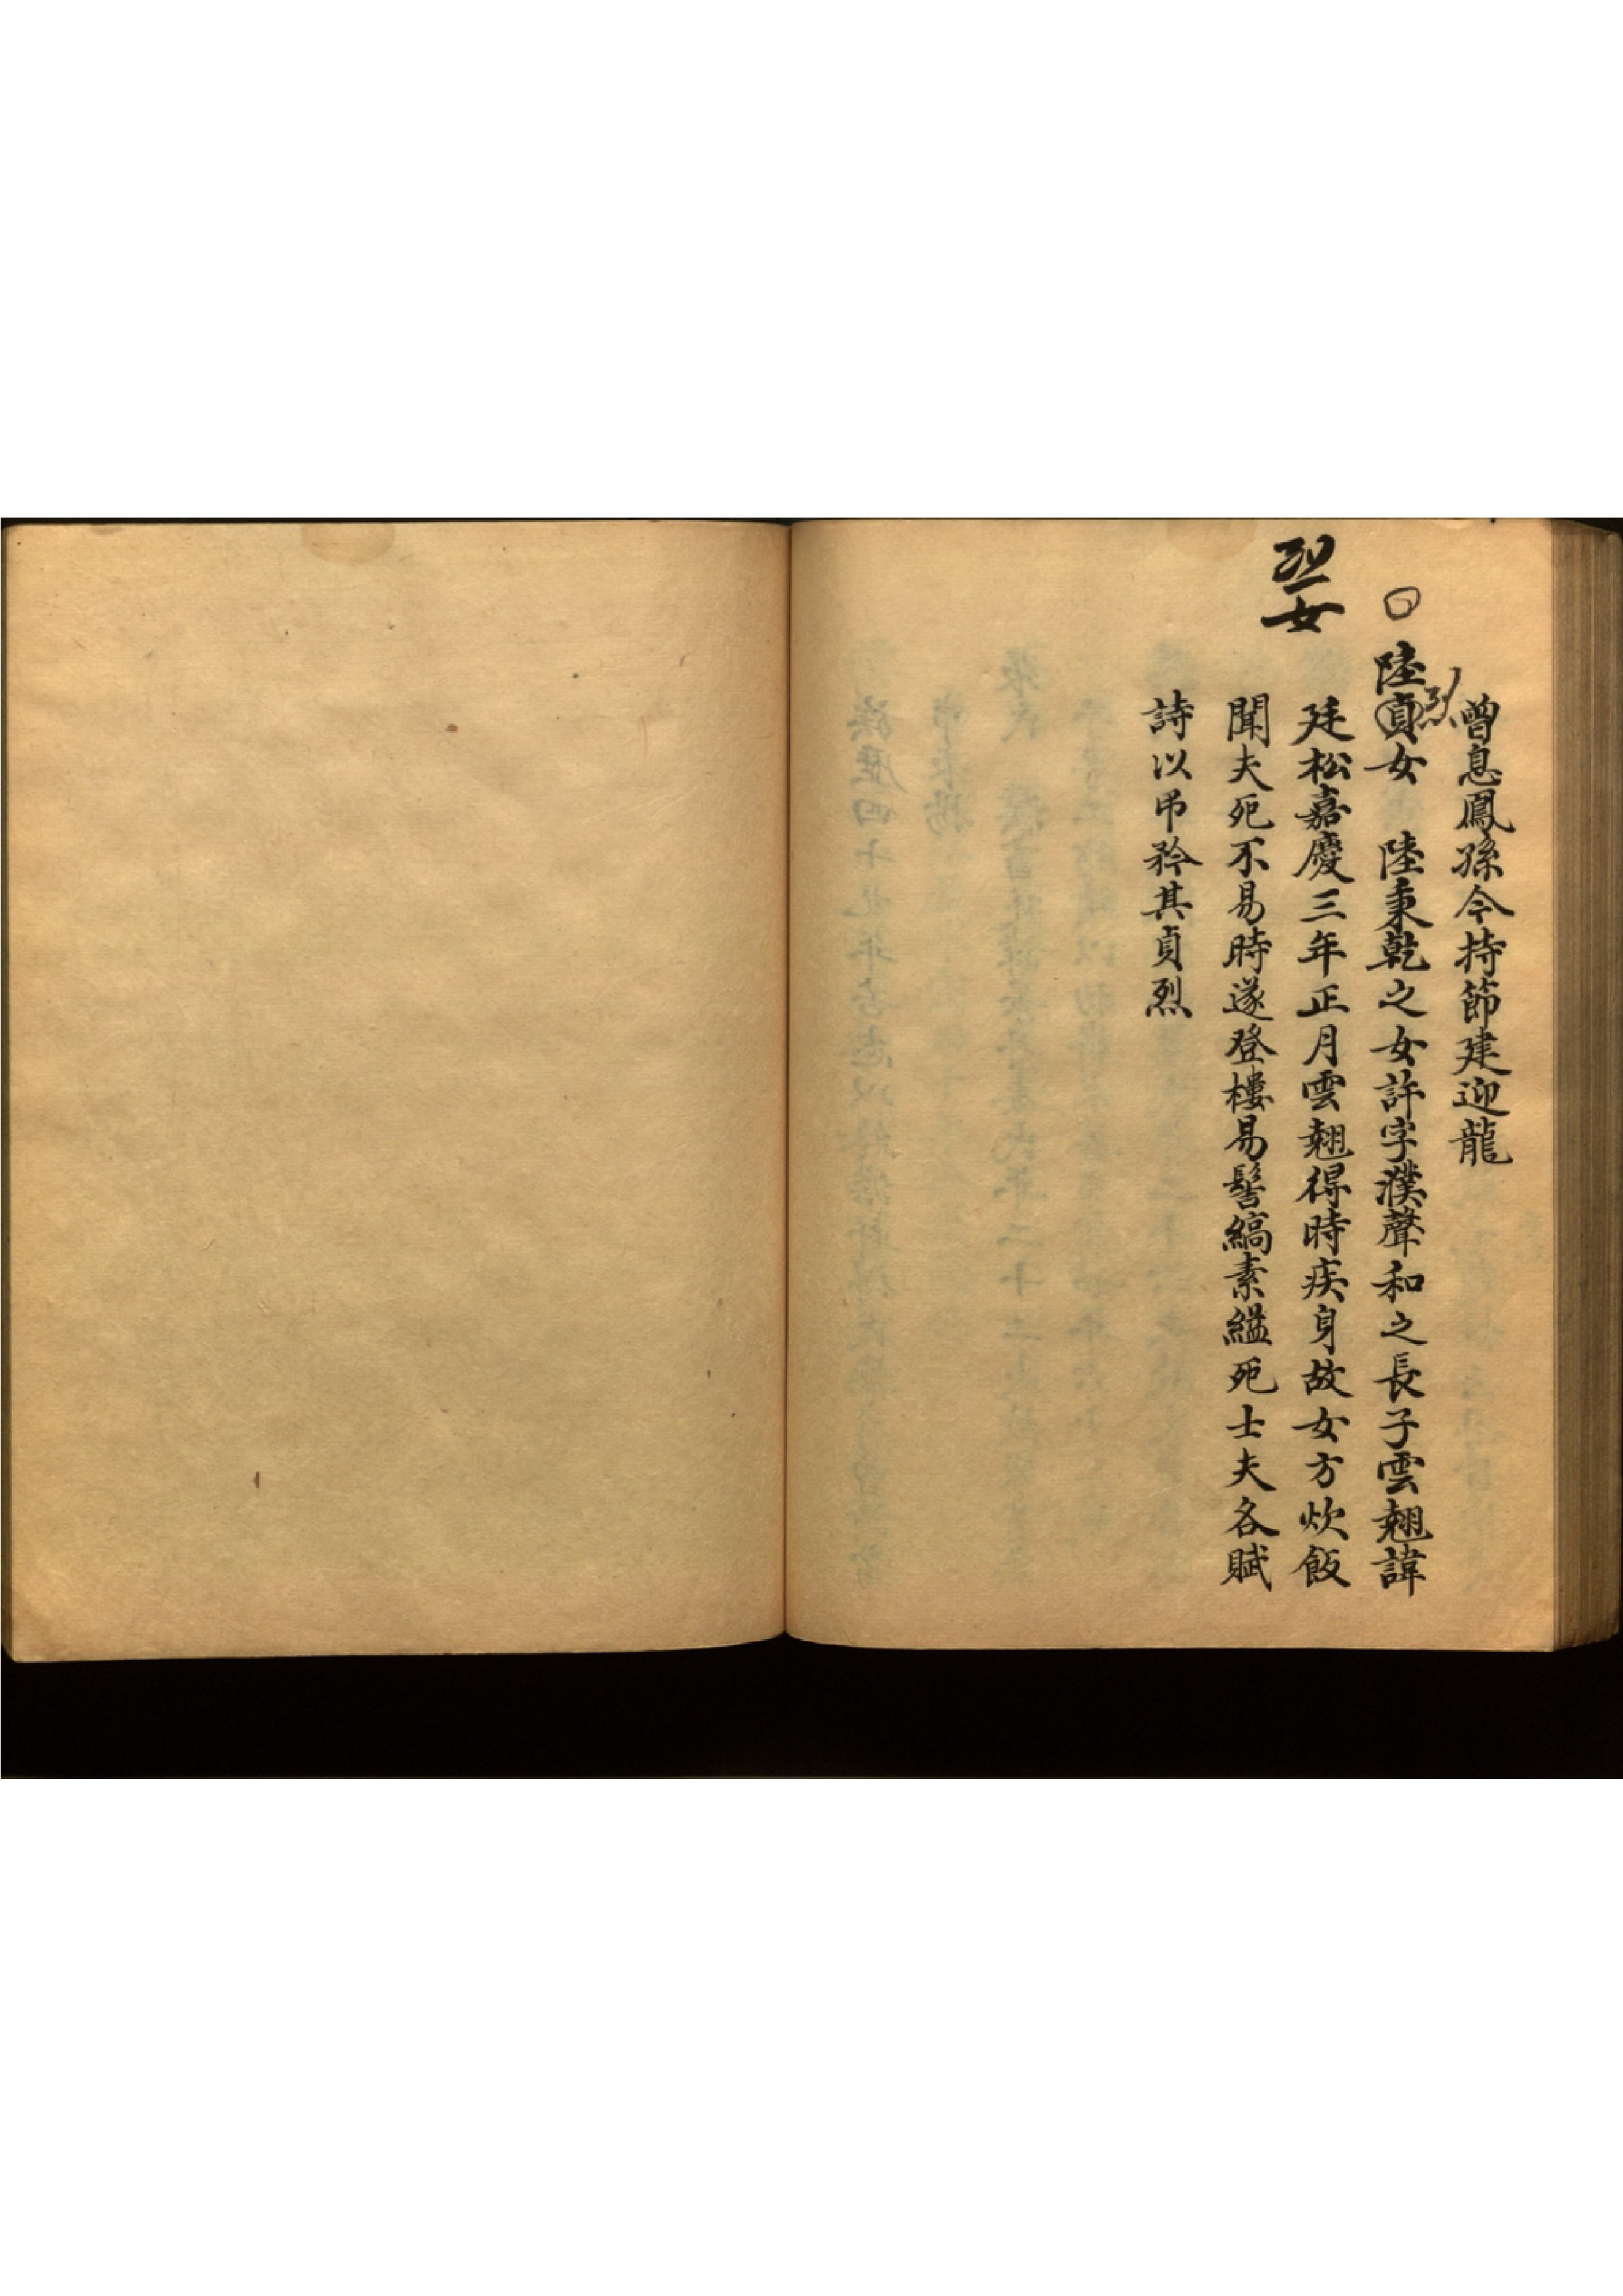 曾息鳳孫今持節建迎龍
烈
陸貞女　陸秉乾之女許字濮聲和之長子雲翹諱
廷松嘉慶三年正月雲翹得時疾身故女方炊飯
聞夫死不易時遂登樓易髻縞素縊死士夫各賦
詩以吊矜其貞烈
烈女